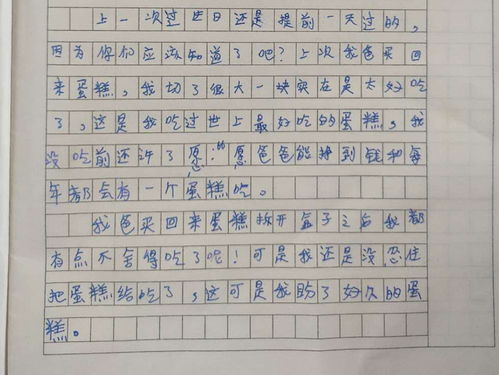 上一次过世日还是提前一天过的,
因为你们应该知道了吧?上次我爸买回
来蛋糕,我切了很大一块实在是太好吃
了,这是我吃过世上最好吃的蛋糕,我
没吃前还许了愿的:愿爸爸能挣到钱和每
年都会有一个蛋糕吃。
我爸买回来蛋糕拆开盒子之后我都
有点不舍得吃了呢!可是我还是没忍住
把蛋糕给吃了,这可是我盼了好久的蛋
糕。